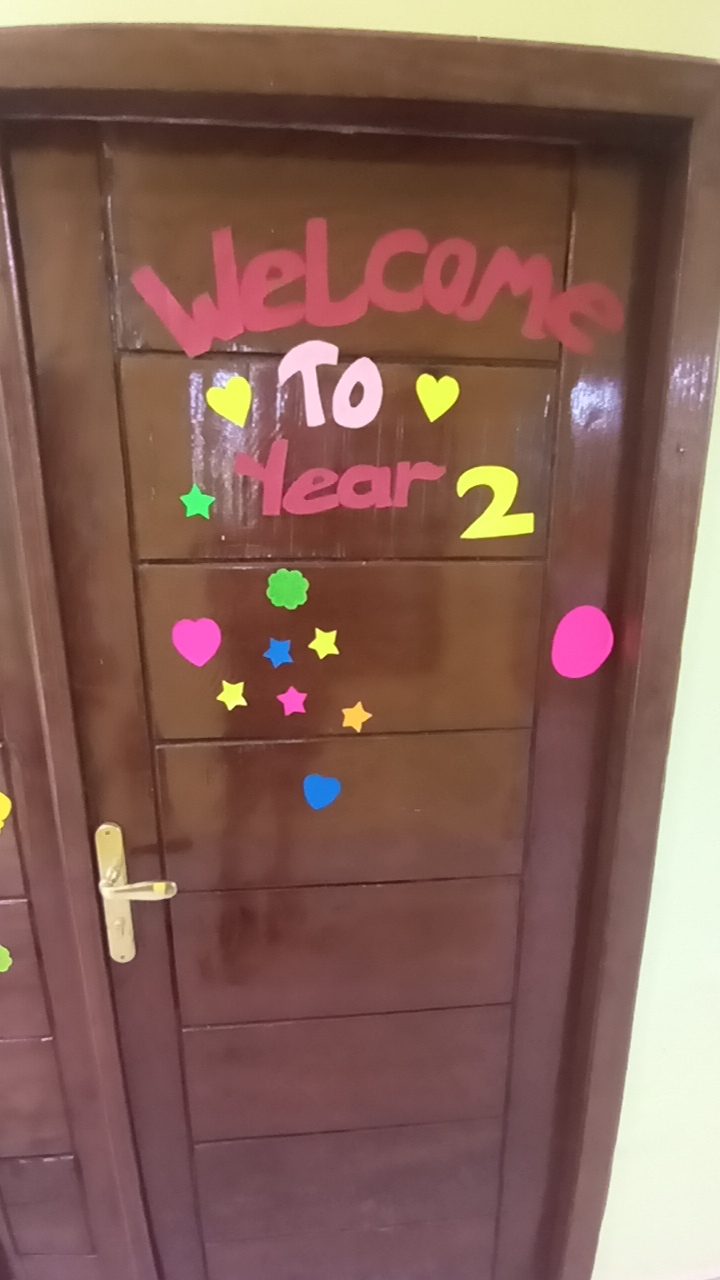 WeLcome
To
Year 2